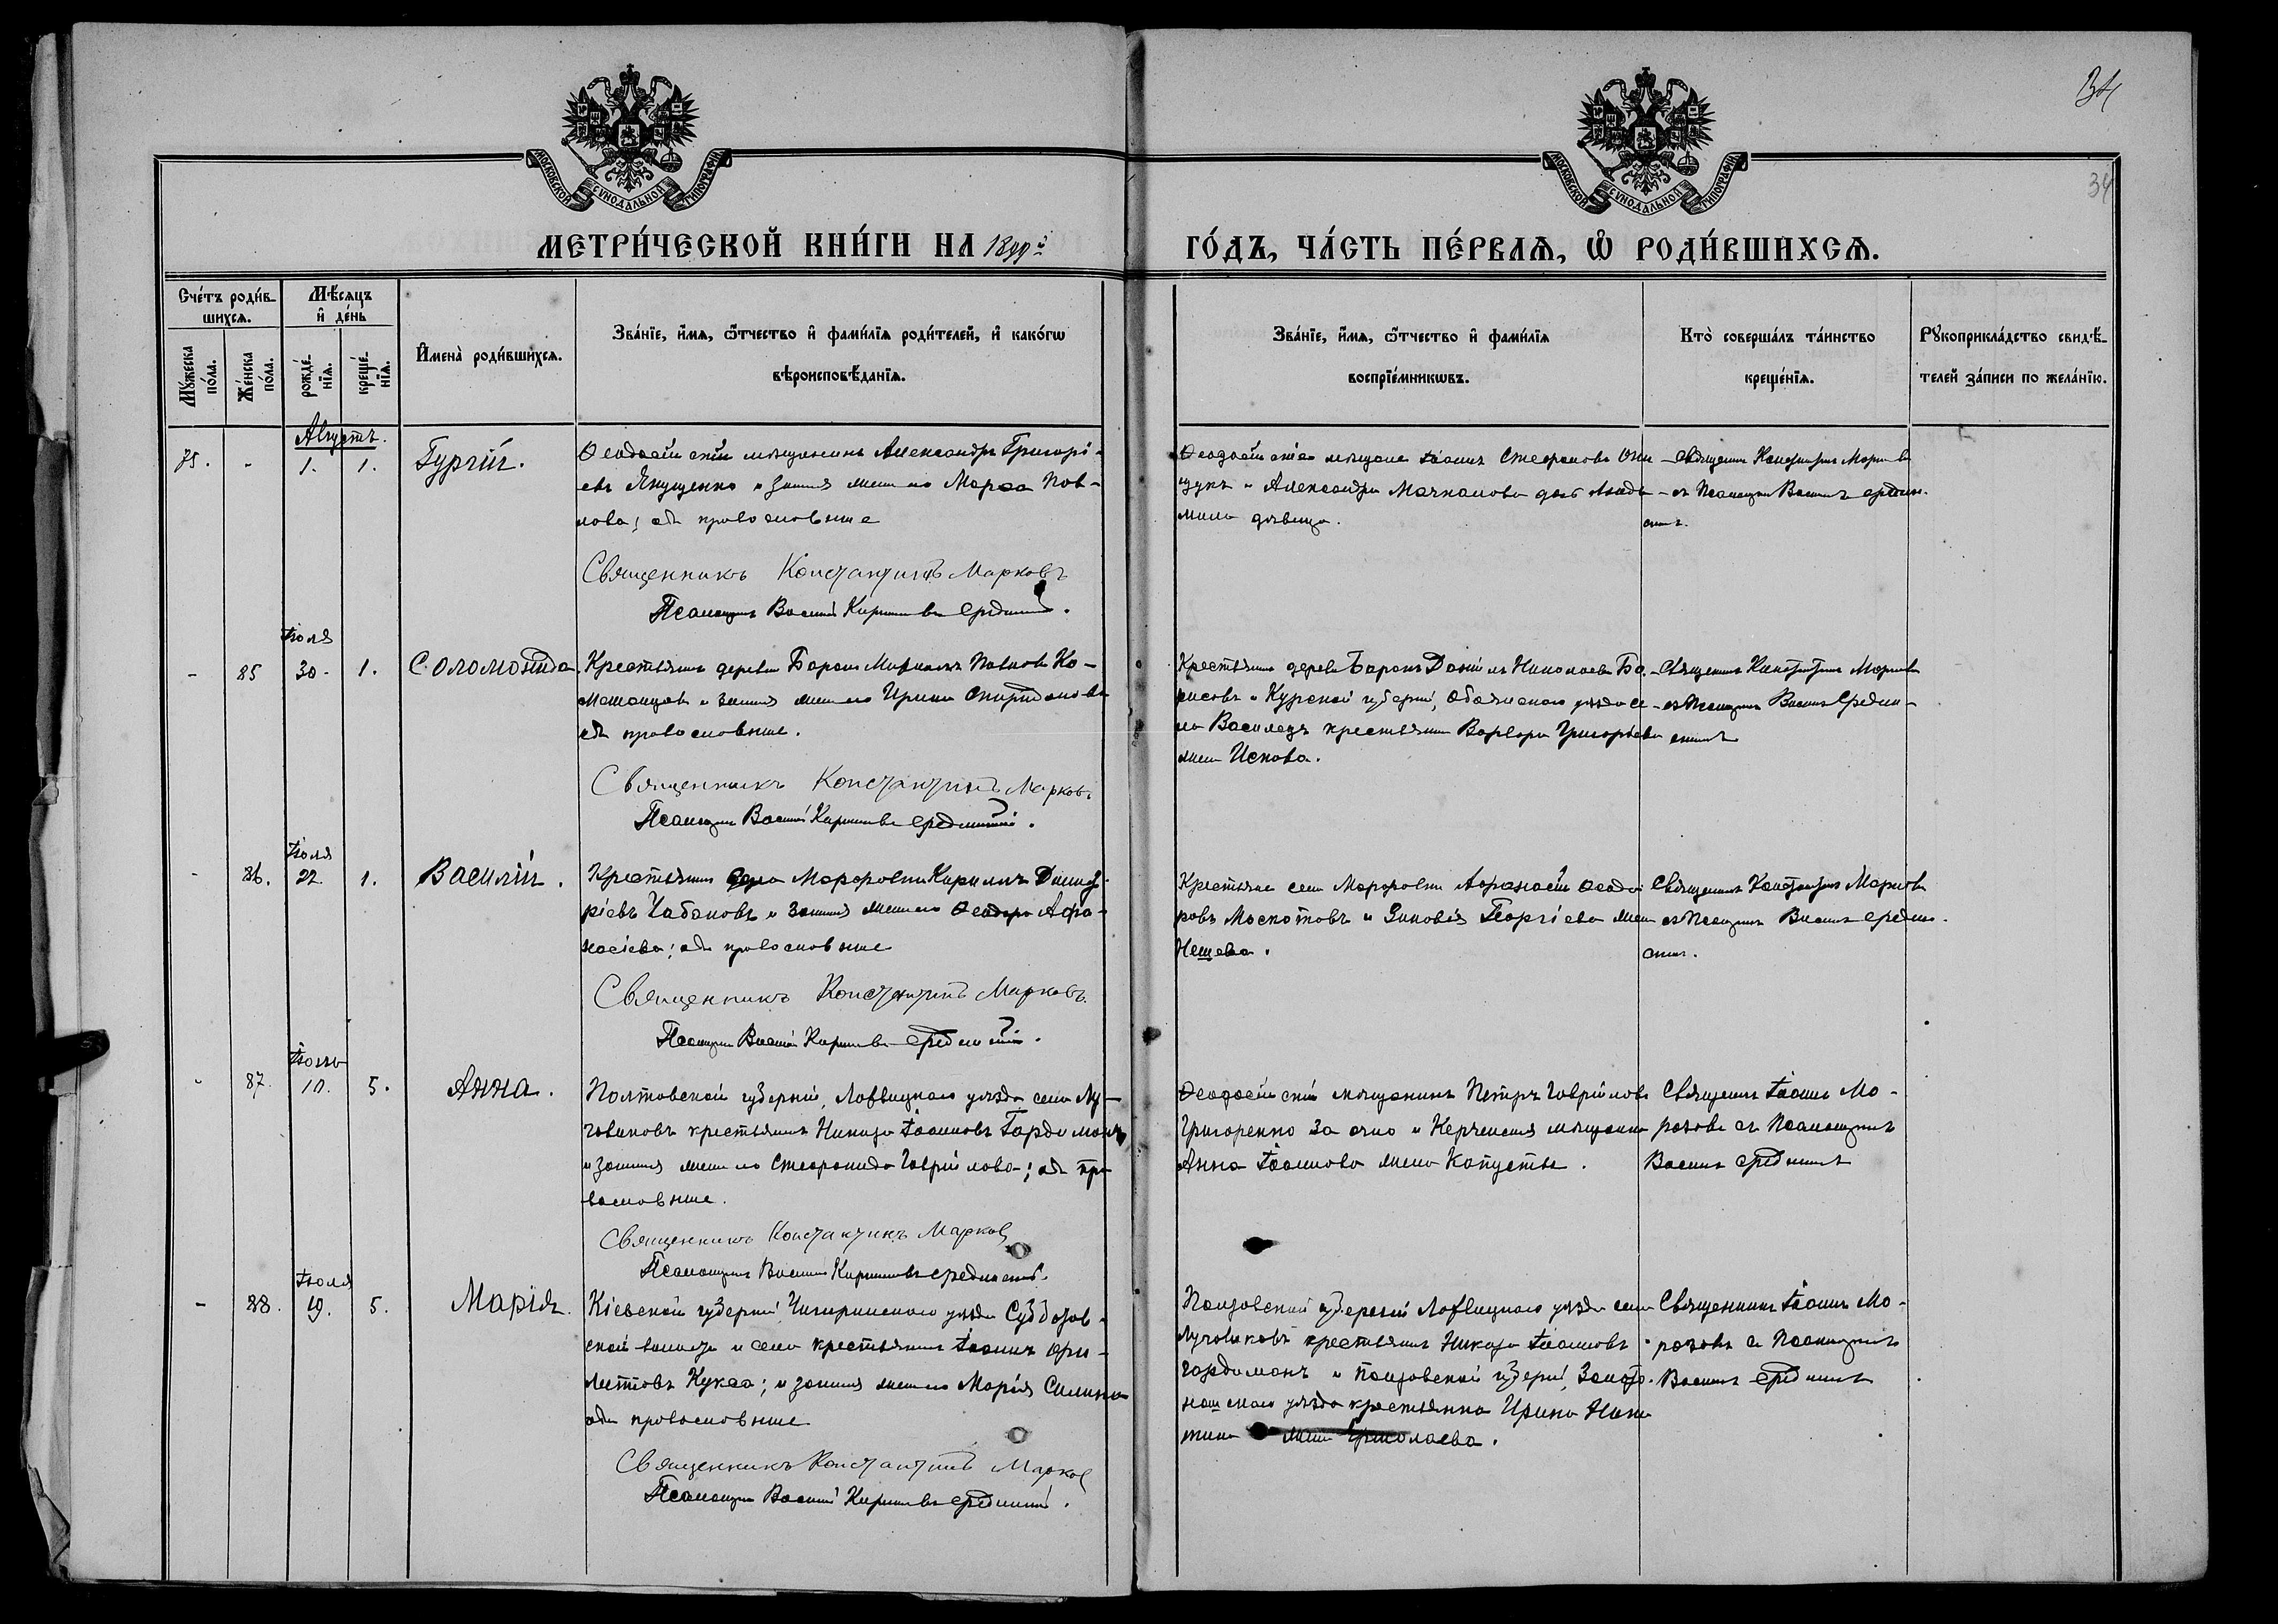 34
34
МОСКОВСКОЙ СѴНОДАЛЬНОЙ ТИПОГРАФІИ
МОСКОВСКОЙ СѴНОДАЛЬНОЙ ТИПОГРАФІИ
МЕТРИ́ЧЕСКОЙ КНИ́ГИ НА 1899й
ГО́ДЪ, ЧА́СТЬ ПЕ́РВАѦ, Ѽ РОДИ́ВШИХСѦ.
Счéтъ роди́в-
шихсѧ.
Мѣ́сѧцъ
и҆ дéнь
Мꙋ́жеска
по́ла.
Же́нска
по́ла.
рожде́-
нїѧ.
креще́-
нїѧ.
И҆мена̀ роди́вшихсѧ.
Зва́нїе, и҆́мѧ, ѻ҆́тчество и҆ фами́лїѧ роди́телей, и҆ како́гѡ
вѣроисповѣ́данїѧ.
Зва́нїе, и҆́мѧ, ѻ҆́тчество и҆ фами́лїѧ
воспрїе́мникѡвъ.
Кто̀ соверша́лъ та́инство
креще́нїѧ.
Рꙋкоприкла́дство свидѣ́-
телей за́писи по жела́нїю.
Августъ.
75. - 1. 1. Гургій.
Ѳеодосійскій мѣщанинъ Александръ Григорі-
евъ Якущенко и законная жена его Марѳа Пав-
лова; оба православные
Священникъ Константинъ Марковъ
Псаломщикъ Василій Кирилловъ Срединскій.
Ѳеодосійскіе мѣщане Іоаннъ Стефановъ
щукъ и Александра дочь
дѣвица.
Священникъ Константинъ Марковъ
съ Псаломщикомъ Василіемъ Средин-
скимъ.
Іюля
- 85 30. 1. Соломонида
Крестьянинъ деревни Баракъ Павловъ Ко-
и законная жена его Ирина Спиридонова
оба православные.
Священникъ Константинъ Марковъ
Псаломщикъ Василій Кирилловъ Срединскій.
Крестьянинъ деревни Баракъ Даніилъ Николаевъ Бо-
рисовъ и Курской губерніи, Обоянскаго уѣзда се-
ла крестьянка Варвара Григорьева
жена Искова.
Священникъ Константинъ Марковъ
съ Псаломщикомъ Василіемъ Средин-
скимъ
Іюля
- 86. 22. 1. Василій.
Крестьянинъ села Марфовки Кириллъ Димит-
ріевъ Чабановъ и законная жена его Ѳеодора Аѳа-
насіева; оба православные
Священникъ Константинъ Марковъ
Псаломщикъ Василій Кирилловъ Срединскій.
Крестьяне села Марфовки Аѳанасій Ѳеодо-
ровъ Москотовъ и Зиновія Георгіева жена
Нещева.
Священникъ Константинъ Марковъ
съ Псаломщикомъ Василіемъ Средин-
скимъ.
Іюль
- 87. 10. 5. Анна.
Полтавской губерніи, Лохвицкаго уѣзда села Лу-
човиковъ крестьянинъ Никита Іоанновъ Гардиманъ
и законная жена его Стефанида Гавріилова; оба пра-
вославные.
Священникъ Константинъ Марковъ
Псаломщикъ Василій Кирилловъ Срединскій.
Ѳеодосійскій мѣщанинъ Петръ Гавріиловъ
Григоренко заочно и Керченская мѣщанка
Анна Іоаннова жена Капусты.
Священникъ Іоаннъ Мо-
розовъ съ Псаломщикомъ
Василіемъ Срединскимъ
Іюля
- 88. 19. 5. Марія.
Кіевской губерніи, Чигиринскаго уѣзда Суботов-
ской волости и села крестьянинъ Іоаннъ Фри-
Кукса; и законная жена его Марія Силина
оба православные
Священникъ Константинъ Марковъ
Псаломщикъ Василій Кирилловъ Срединскій.
Полтавской губерніи Лохвицкаго уѣзда села
Лучовиковъ крестьянинъ Никита Іоанновъ
Гардиманъ и Полтавской губерніи, Золото-
ношскаго уѣзда крестьянка Ирина Ники-
тина жена Ермолаева.
Священникъ Іоаннъ Мо-
розовъ съ Псаломщикомъ
Василіемъ Срединскимъ